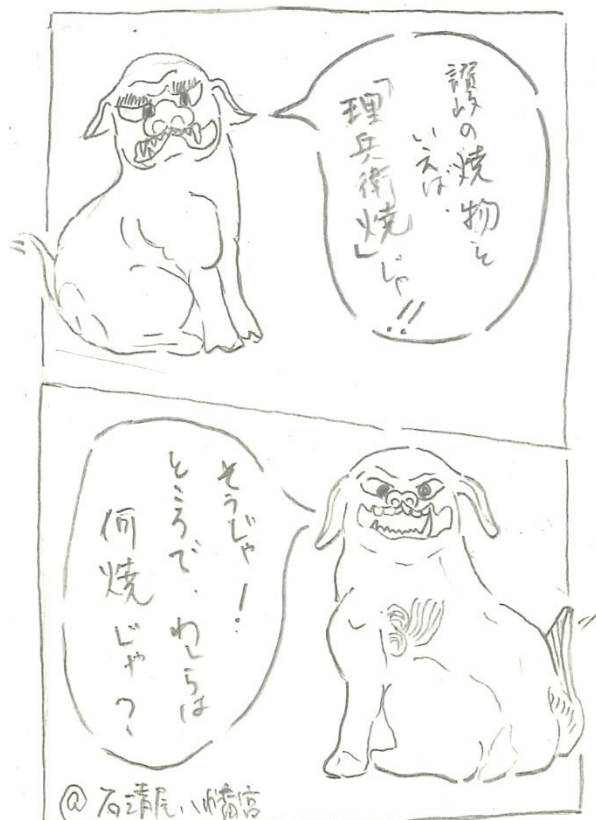 讃岐の焼物と
いえば、
「理兵衛焼」じゃ!!
そうじゃ!
ところで、わしらは
何焼じゃ?
@石清尾八幡宮